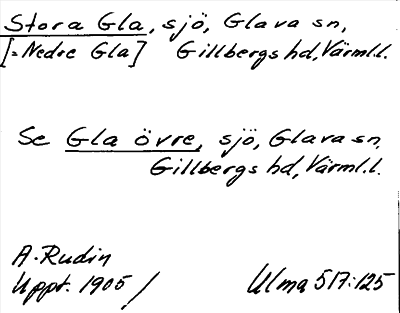 Stora Gla, sjö, Glava sn,
[= Nedre Gla] Gillbergs hd, Värml.l.
Se Gla övre, sjö, Glava sn,
Gillbergs hd, Värml.l.
A. Rudin
Uppt. 1905 / Ulma 517:125